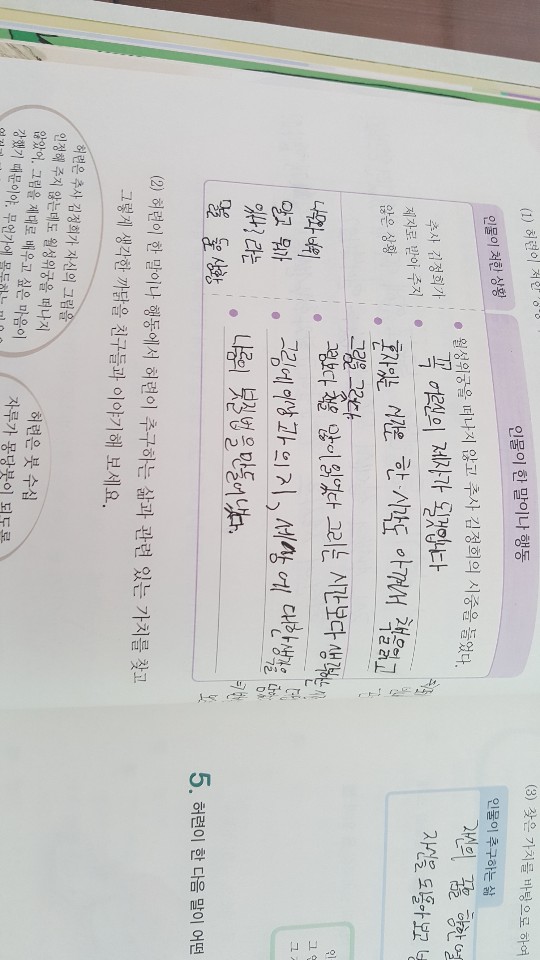 (1) 허련이 처한 상황
인물이 처한 상황
인물이 한 말이나 행동
추사 김정희가
제자로 받아 주지
않은 상황
월성위궁을 떠나지 않고 추사 김정희의 시중을 들었다.
꼭 어르신의 제자가 될것입니다
혼자있는 시간은 한 시각도 아껴서 책을읽고
그림을 그렸다
그림보다 책을 많이 읽었다 그리는 시간보다 생각하는
그림에 이상과 의지, 세상에 대한 생각을
나름의 붓질법을 만들어 냈다.
(2) 허련이 한 말이나 행동에서 허련이 추구하는 삶과 관련 있는 가치를 찾고
그렇게 생각한 까닭을 친구들과 이야기해 보세요.
허련은 추사 김정희가 자신의 그림을
인정해 주지 않는데도 월성위궁을 떠나지
않았어. 그림을 제대로 배우고 싶은 마음이
강했기 때문이야. 무언가에 몰두하는
허련은 붓 수십
자루가 몽당붓이 되도록
(3) 찾은 가치를 바탕으로 하여
인물이 추구하는 삶
자신의 꿈을 향한
자신을 되돌아보고
5. 허련이 한 다음 말이 어떤